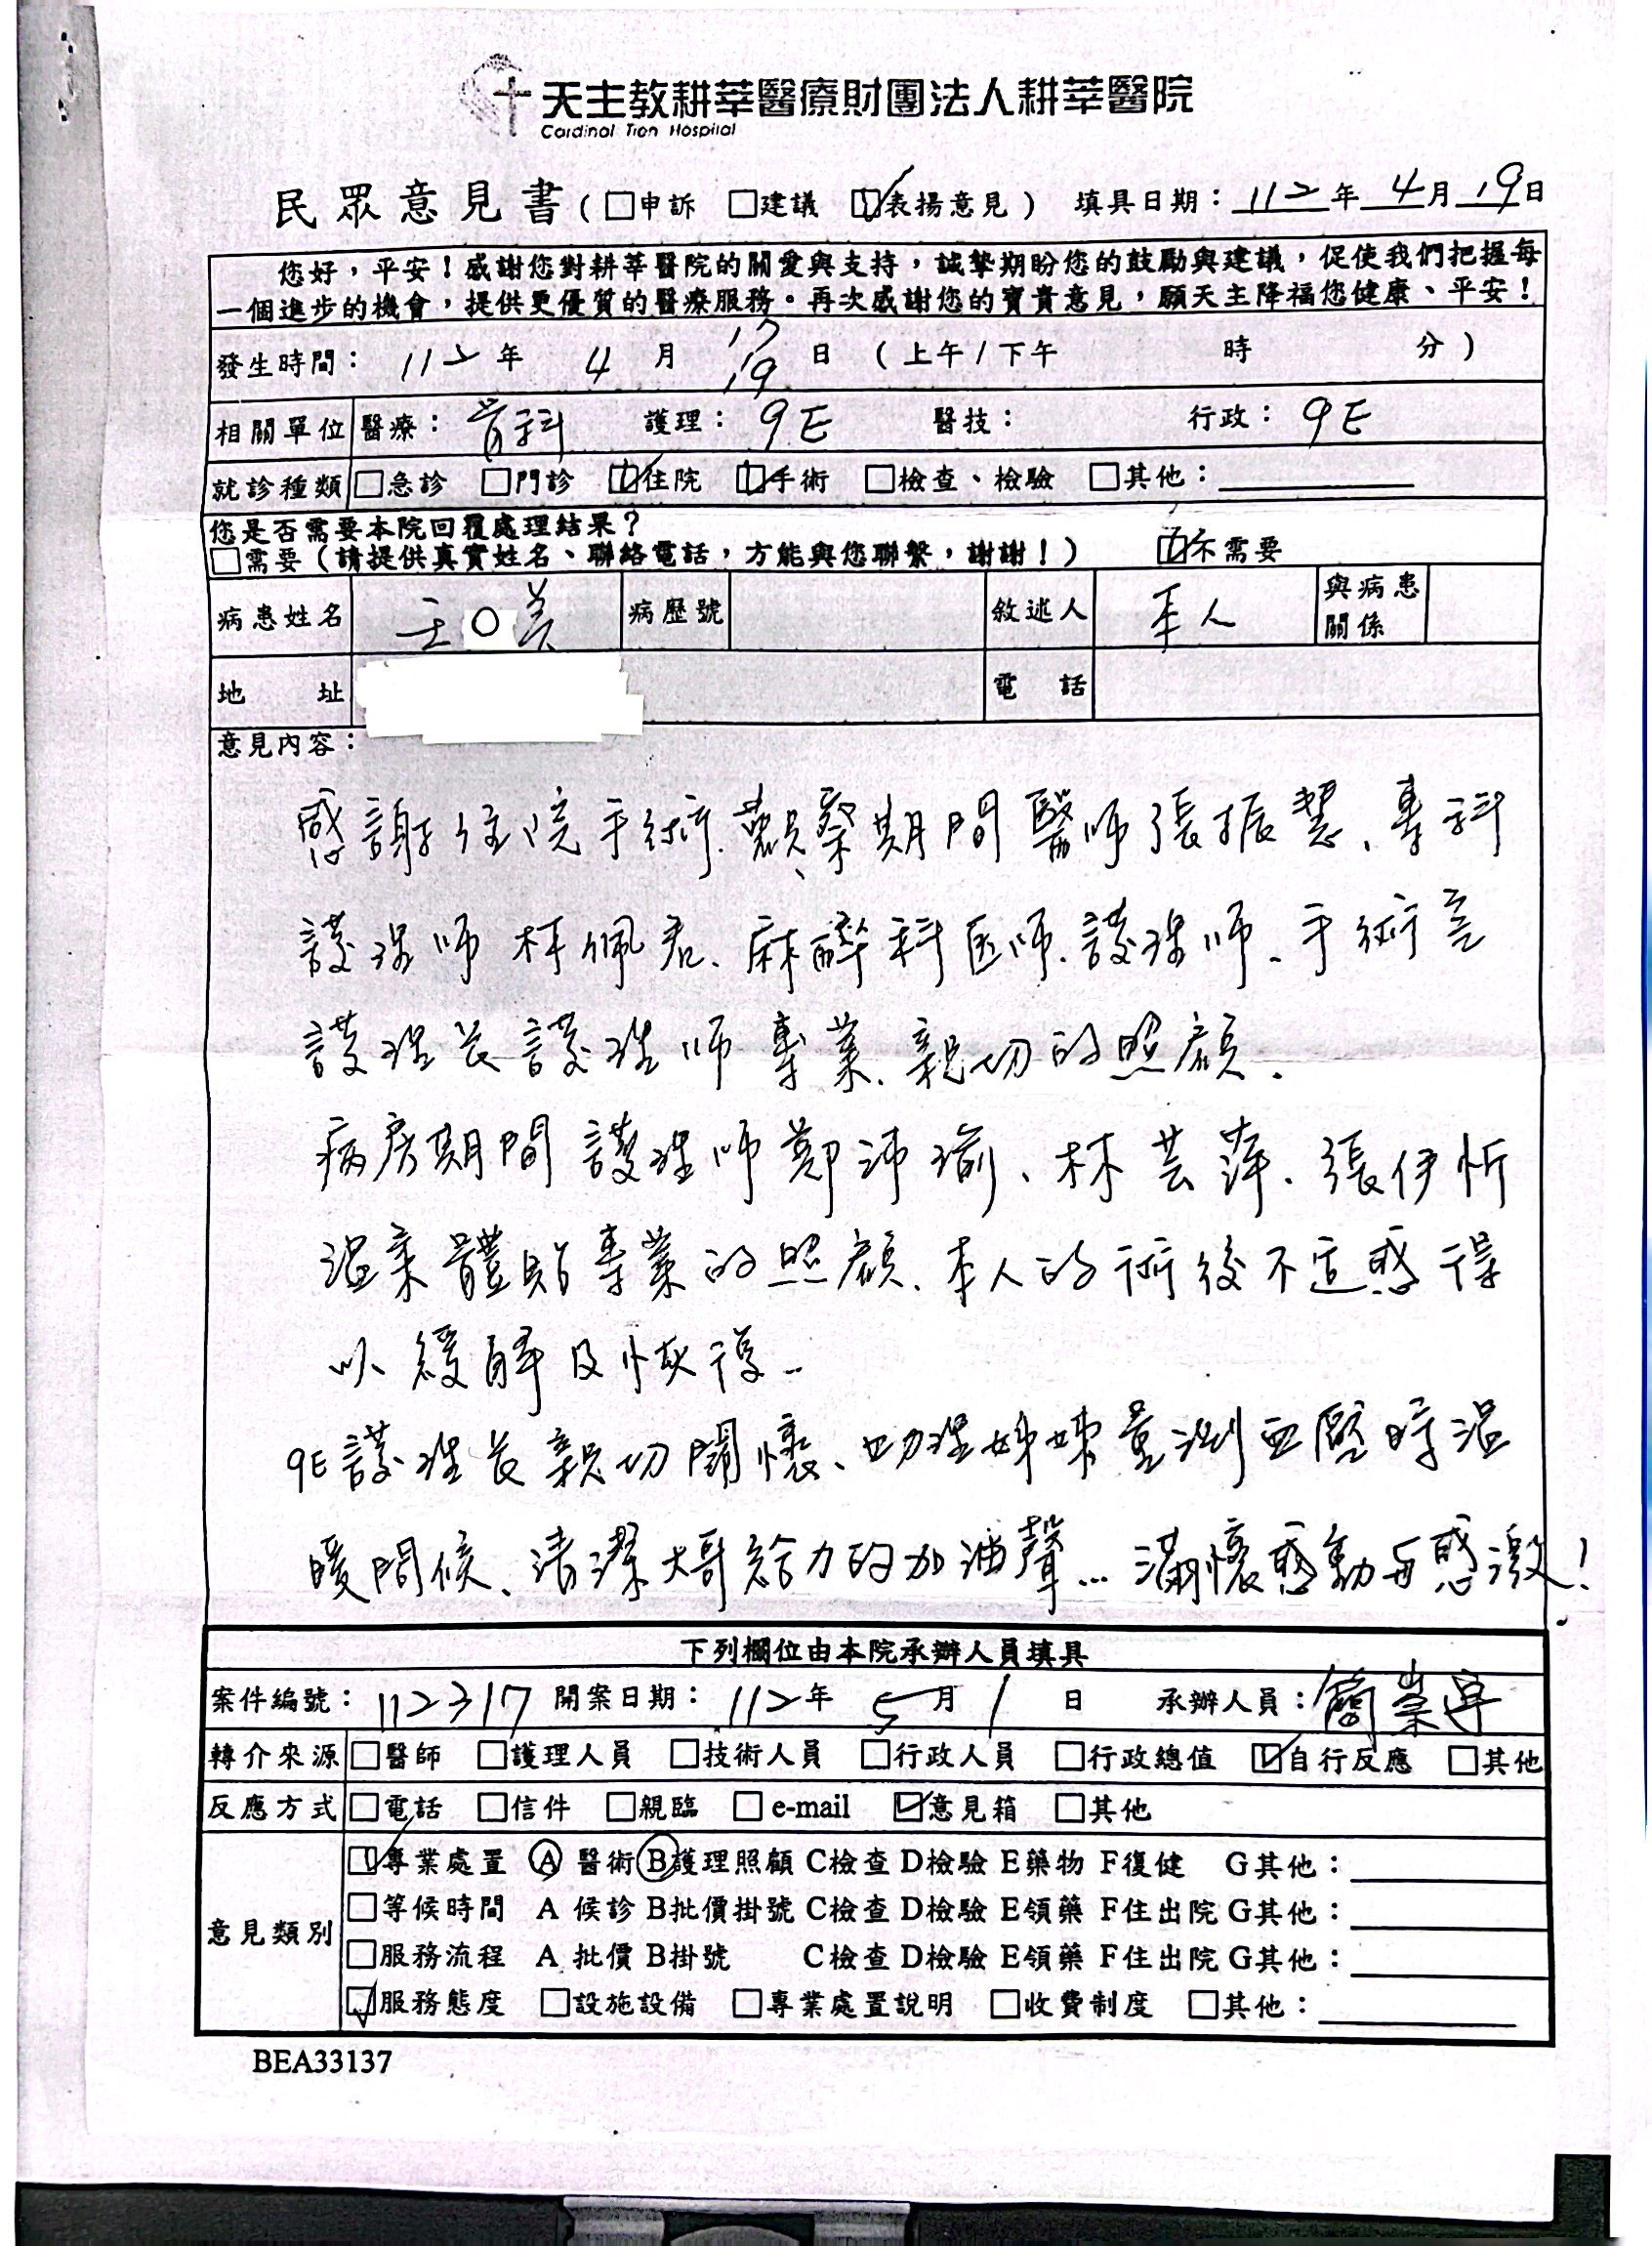 天主教耕莘醫療財團法人耕莘醫院
Cardinal Tien Hospital
民眾意見書(□申訴 □建議 ☑表揚意見) 填具日期：112年4月19日
您好，平安！感謝您對耕莘醫院的關愛與支持，誠摯期盼您的鼓勵與建議，促使我們把握每
一個進步的機會，提供更優質的醫療服務。再次感謝您的寶貴意見，願天主降福您健康、平安！
發生時間：112年4月17 19日(上午/下午 時 分)
相關單位 醫療：骨科 護理：9E 醫技： 行政：9E
就診種類 □急診 □門診 ☑住院 ☑手術 □檢查、檢驗 □其他：
您是否需要本院回覆處理結果？
□需要(請提供真實姓名、聯絡電話，方能與您聯繫，謝謝！) ☑不需要
病患姓名 王○美 病歷號 敘述人 本人 與病患關係
地址 電話
意見內容：
感謝住院手術、觀察期間醫師張振慧、專科
護理師林佩君、麻醉科医師、護理師、手術室
護理長護理師專業、親切的照顧.
病房期間護理師鄭沛瑜、林芸萍、張伊忻
溫柔體貼專業的照顧、本人的術後不適感得
以緩解及恢復.
9E護理長親切關懷、助理姊姊量測血壓時溫
暖問候、清潔大哥給力的加油聲...滿懷感動與感激！
下列欄位由本院承辦人員填具
案件編號：112317 開案日期：112年5月1日 承辦人員：簡崇
轉介來源 □醫師 □護理人員 □技術人員 □行政人員 □行政總值 ☑自行反應 □其他
反應方式 □電話 □信件 □親臨 □e-mail ☑意見箱 □其他
意見類別 ☑專業處置 Ⓐ醫術 Ⓑ護理照顧 C檢查 D檢驗 E藥物 F復健 G其他：
□等候時間 A候診 B批價掛號 C檢查 D檢驗 E領藥 F住出院 G其他：
□服務流程 A批價 B掛號 C檢查 D檢驗 E領藥 F住出院 G其他：
☑服務態度 □設施設備 □專業處置說明 □收費制度 □其他：
BEA33137